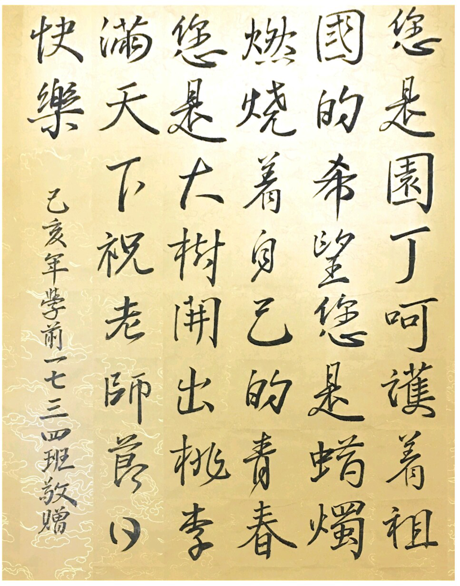 您是園丁呵護着祖
國的希望您是蜡燭
燃烧着自己的青春
您是大樹開出桃李
滿天下祝老師節日
快樂
己亥年學前一七三四班敬贈